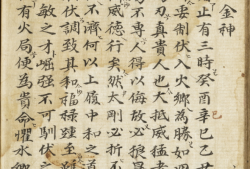 金神
止有三時癸酉辛巳乙
要制伏入火鄉為勝如四
刃真貴人也大抵威猛者
不專人得以侮故必狼暴
威德行矣然太剛必折不
不濟何以上履中和之道
伏調致其和福祿踵至雖
敏之才崛强不可馴伏之
有火局便為貴命懼水鄉